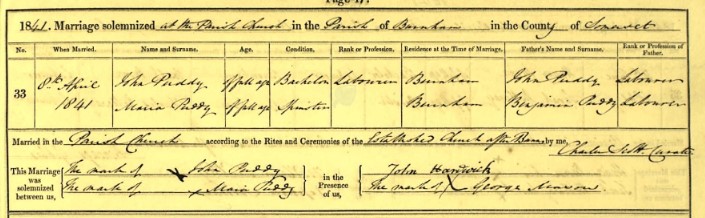 Page 17.
1841. Marriage solemnized at the Parish Church in the Parish of Burnham in the County of Somerset
No. When Married. Name and Surname. Age. Condition. Rank or Profession. Residence at the Time of Marriage. Father's Name and Surname. Rank or Profession of Father.
33 8th April John Puddy of full age Bachelor Labourer Burnham John Puddy Labourer
1841 Maria Puddy of full age Spinster Burnham Benjamin Puddy Labourer
Married in the Parish Church according to the Rites and Ceremonies of the Established Church after Banns by me,
Charles Scott Curate
This Marriage was solemnized between us, The mark of x John Puddy in the Presence of us, John Hardwich
The mark of x Maria Puddy The mark of x George